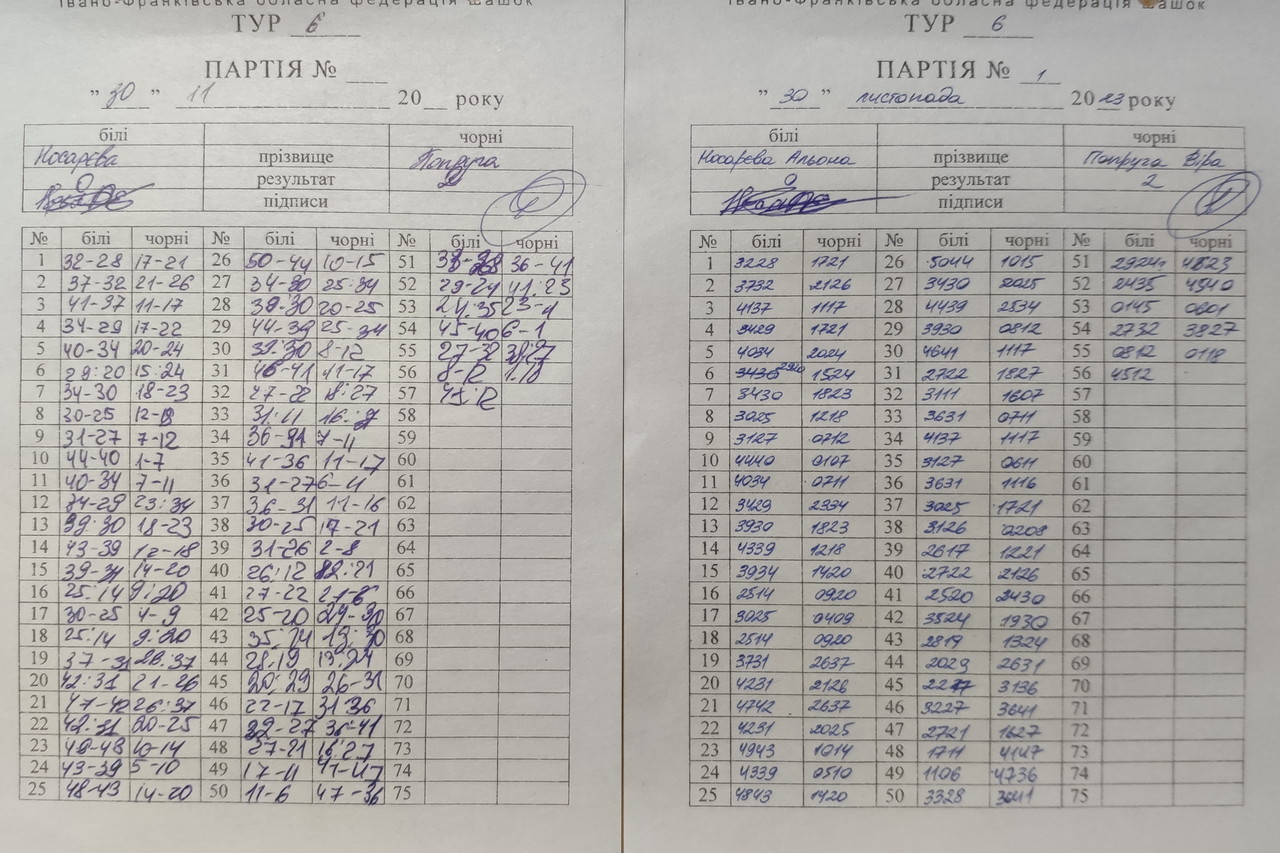 Івано-Франківська обласна федерація шашок
ТУР 6
ПАРТІЯ № ___
" 30 " 11 20__ року
білі чорні
Косарєва прізвище Попруга
0 результат 2
підписи
№ білі чорні № білі чорні № білі чорні
1 32-28 17-21 26 50-44 10-15 51 36-41
2 37-32 21-26 27 34-30 25:34 52 29-24 41:23
3 41-37 11-17 28 39:30 20-25 53 24:35
4 34-29 17-22 29 44-39 25-34 54 45-40 6-1
5 40-34 20-24 30 39:30 8-12 55 27-32 38:27
6 29:20 15:24 31 46-41 11-17 56 8-12 1:18
7 34-30 18-23 32 27-22 18:27 57 45:12
8 30-25 12-18 33 31:11 16:7 58
9 31-27 7-12 34 7-11 59
10 44-40 1-7 35 41-36 11-17 60
11 40-34 7-11 36 31-27 6-11 61
12 34-29 23:34 37 36-31 11-16 62
13 39:30 18-23 38 30-25 17-21 63
14 43-39 12-18 39 31-26 2-8 64
15 39-34 14-20 40 26:12 65
16 25:14 9:20 41 27-22 21-26 66
17 30-25 4-9 42 25-20 67
18 25:14 9:20 43 35:24 19:30 68
19 37-31 26:37 44 28:19 13:24 69
20 42:31 21-26 45 20:29 26-31 70
21 47-42 26:37 46 22-17 31 36 71
22 42:31 20-25 47 32-27 36-41 72
23 49-43 10-14 48 27-21 16:27 73
24 43-39 5-10 49 17-11 41-47 74
25 48-43 14-20 50 11-6 47-36 75
Івано-Франківська обласна федерація шашок
ТУР 6
ПАРТІЯ № 1
" 30 " листопада 2023 року
білі чорні
Косарєва Альона прізвище Попруга Віра
0 результат 2
підписи
№ білі чорні № білі чорні № білі чорні
1 3228 1721 26 5044 1015 51 2924 4823
2 3732 2126 27 3430 2025 52 2435 4540
3 4137 1117 28 4439 2534 53 0145 0601
4 3429 1721 29 3930 0812 54 2732 3827
5 4034 2024 30 4641 1117 55 0812 0118
6 2920 1524 31 2722 1827 56 4512
7 3430 1823 32 3111 1607 57
8 3025 1218 33 3631 0711 58
9 3127 0712 34 4137 1117 59
10 4440 0107 35 3127 0611 60
11 4034 0711 36 3631 1116 61
12 3429 2334 37 3025 1721 62
13 3930 1823 38 3126 0208 63
14 4339 1218 39 2617 1221 64
15 3934 1420 40 2722 2126 65
16 2514 0920 41 2520 2430 66
17 3025 0409 42 3524 1930 67
18 2514 0920 43 2819 1324 68
19 3731 2637 44 2029 2631 69
20 4231 2126 45 2217 3136 70
21 4742 2637 46 3227 3641 71
22 4231 2025 47 2721 1627 72
23 4943 1014 48 1711 4147 73
24 4339 0510 49 1106 4736 74
25 4843 1420 50 3328 3641 75